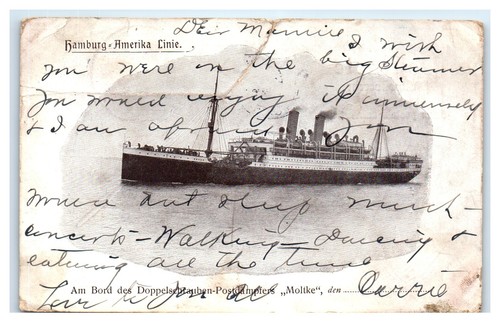 Hamburg-Amerika Linie.
Dear Mamie
I wish
you were on the big Steamer
You would enjoy it immensely
& I am afraid you
would not sleep much -
concerts - Walking - Dancing &
eating all the time
Am Bord des Doppelschrauben-Postdampfers „Moltke“, den
Carrie
Love to you all